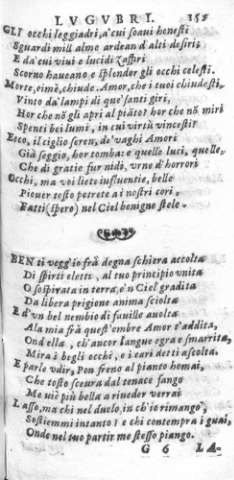 LVGVBRI. 155
GLI occhi leggiadri, a'cui soaui honesti
Sguardi mill'alme ardean d'alti desiri;
E da'cui viui e lucidi Zaffiri
Scorno haueano e splender gli occhi celesti.
Morte, oimè, chiude. Amor, che i tuoi chiudesti,
Vinto da'lampi di que'santi giri,
Hor che nō gli apri al piāto? hor che nō miri
Spenti bei lumi, in cui virtù vincesti?
Ecco, il ciglio seren, de'vaghi Amori
Già seggio, hor tomba: e quelle luci, quelle,
Che di gratie fur nidi, vrne d'horrori
Occhi, ma voi liete influentie, belle
Piouer tosto potrete a i nostri cori,
Fatti (spero) nel Ciel benigne stele.
BEN ti vegg'io frà degna schiera accolta
Di spirti eletti, al tuo principio vnita
O sospirata in terra, e'n Ciel gradita
Da libera prigione anima sciolta
E d'vn bel nembio di fauille auolta
Ala mia frà quest'ombre Amor t'addita,
Ond'ella, ch'ancor langue egra e smarrita,
Mira i begli occhi, e i cari detti ascolta.
E parlo vdir, Pon freno al pianto homai,
Che tosto sceura dal tenace fango
Me uiè più bella a riueder verrai
Lasso, ma chi nel duolo, in ch'io rimango,
Sostiemmi intanto? e chi contempra i guai,
Onde nel tuo partir me stesso piango.
G 6 LA-